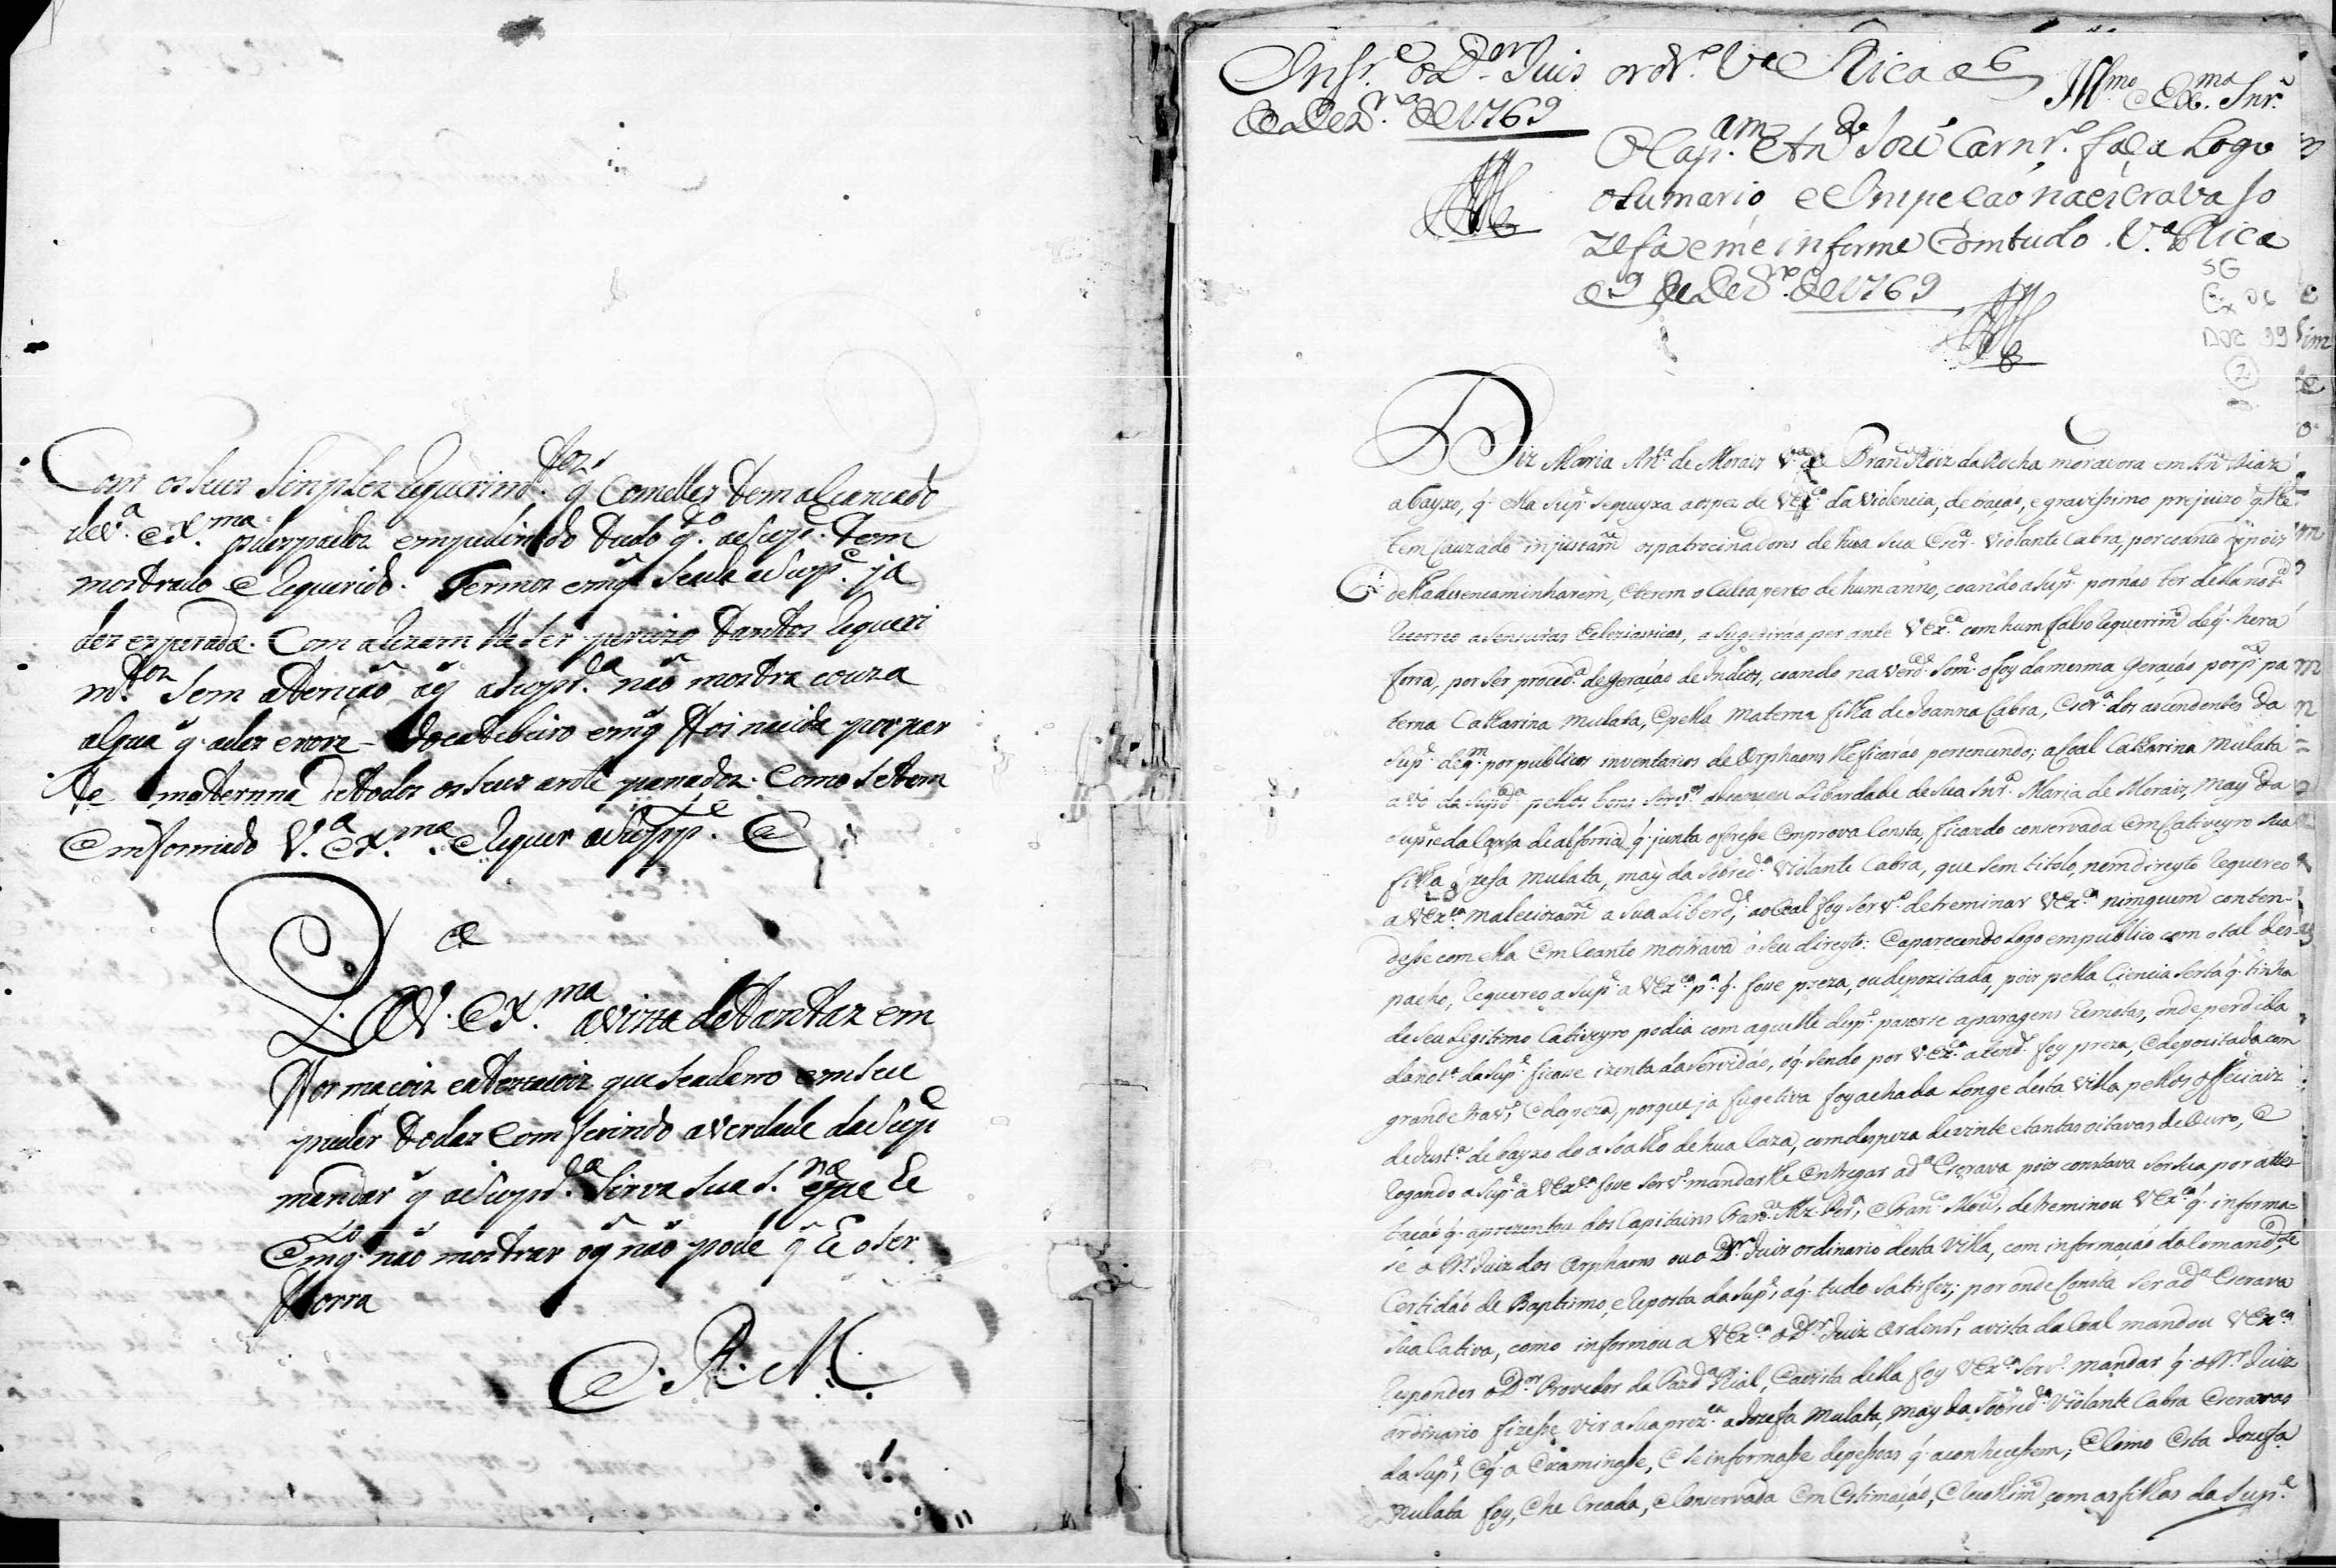 Com os seus simplez requerim.tos q̃ Comelles tem alcançado
de V.a Ex.ma empedindo tudo q.to a Sup.e tem
mostrado e requerido. termos emq̃ se acha a Sup.e ja
dez esperada. Com alizam
m.tos sem atenção aq̃ a Supd.a não mostra couza
algũa q̃ adez enore do catibeiro emq̃ foi nacida por par
te maternna de todos os seus ante panados. Como se tem
emformado V.a Ex.ma e requer a Supp.e
P. a V. Ex.ma avista de tantaz em
formaçoiz e atestaçoiz que se acham em seu
puder todaz comferindo a verdade da Sup.e
mandar q̃ a Supd.a sirva sua S.ra
emq.to não mostrar oq̃ não pode q̃ he o ser
forra
E. R. M.
Inf.e o D.or Juis ord.ro V.a Rica a 6
de Dez.ro de 1769
Ill.mo e Ex.mo Snr.
O Cap.am An.to José Carn.ro faça Logo
o sumario, e Inspeção na escrava Jo
zefa e me informe Com tudo. V.a Rica
a 9 de Dez.ro de 1769
SG
Cx 06
DOC 99
2
Diz Maria An.ta de Moraiz V.a de Fran.co Roiz da Rocha moradora em An.to Diaz
abayxo, q̃ ella Sup.e se queyxa aos pez de V Ex.ca da violencia, e gravissimo prejuizo q̃ lhe
tem cauzado injustam.e os patrocinadores de hũa sua Escr.a Violante Cabra, porcoanto depois
della desencaminharem, e terem oculta perto de hum anno, coando a Sup.e por não ter della not.a
recorreo a sensuras Ecleziasticas, a sugedirão per ante V Ex.ca com hum falso requerim.to de q̃ hera
forra, por ser proced.a de geração de Indios, coando na verd.e som.e o foy da mesma geração por p.te pa
terna Catharina mulata, e pella materna filha de Joanna Cabra, Escr.a dos ascendentes da
Sup.e de q.m por publicos inventarios de Orphaons lhe ficarão pertencendo; a coal Catharina mulata
avó da Supd.a pellos bons serv.os alcansou Libardade de sua Snr.a Maria de Moraiz, may da
Sup.e e da Carta de alforria q̃ junta ofresse em prova consta, ficando conservada em Cativeyro sua
filha Jozefa mulata, may da sobred.a Violante Cabra, que sem titolo, nem direyto requereo
a V Ex.ca a sua Liberd.e, ao coal foy serv.o detreminar V Ex.ca nimguem conten-
desse com ella em coanto mostrava o seu direyto: e aparecendo Logo em publico com o tal des-
pacho, requereo a Sup.e a V Ex.ca p.a q̃ fose preza, ou depozitada, pois pella Ciencia serta q̃ tinha
de seu Legitimo Cativeyro podia com aquelle desp.o pasarse a paragens remotas, onde perdida
da not.a da Sup.e ficasse izenta da servidão, oq̃ sendo por V Ex.ca atend.o foy preza, e depozitada com
grande trav.o, e despeza, porque ja fugetiva foy achada Longe desta Villa pellos officiaiz
de Just.a debayxo do asoalho de hũa Caza, com despeza de vinte e tantas oitavas de Ouro, e
rogando a Sup.e a V Ex.ca fose serv.o mandarlhe entregar a d.a Escrava pois constava ser sua por attes-
tação q̃ aprezentou dos Capitains e Fran.co detreminou V Ex.ca q̃ informa=
se o M.e Juiz dos Orphaons ou o D.or Juiz ordinario desta Villa, com informação do Comand.e
Certidão de Baptismo, e reposta da Sup.e, aq̃ tudo satisfez; por onde Consta ser a d.a Escrava
sua Cativa, como informou a V Ex.ca o D.or Juiz Orden.ro, avista da Coal mandou V Ex.ca
responder o D.or Provedor da Fazd.a Rial, e avista della foy V Ex.ca serv.o mandar q̃ o M.e Juiz
ordinario fizesse vir a sua prez.ca a Jozefa mulata, may da sobred.a Violante Cabra Escravas
da Sup.e, e q̃ a Examinasse, e se informasse de pessoas q̃ a conhecessem; e como esta Jozefa
mulata foy, e he Creada, e Conservada em estimação, e recolhim.to com as filhas da Sup.e